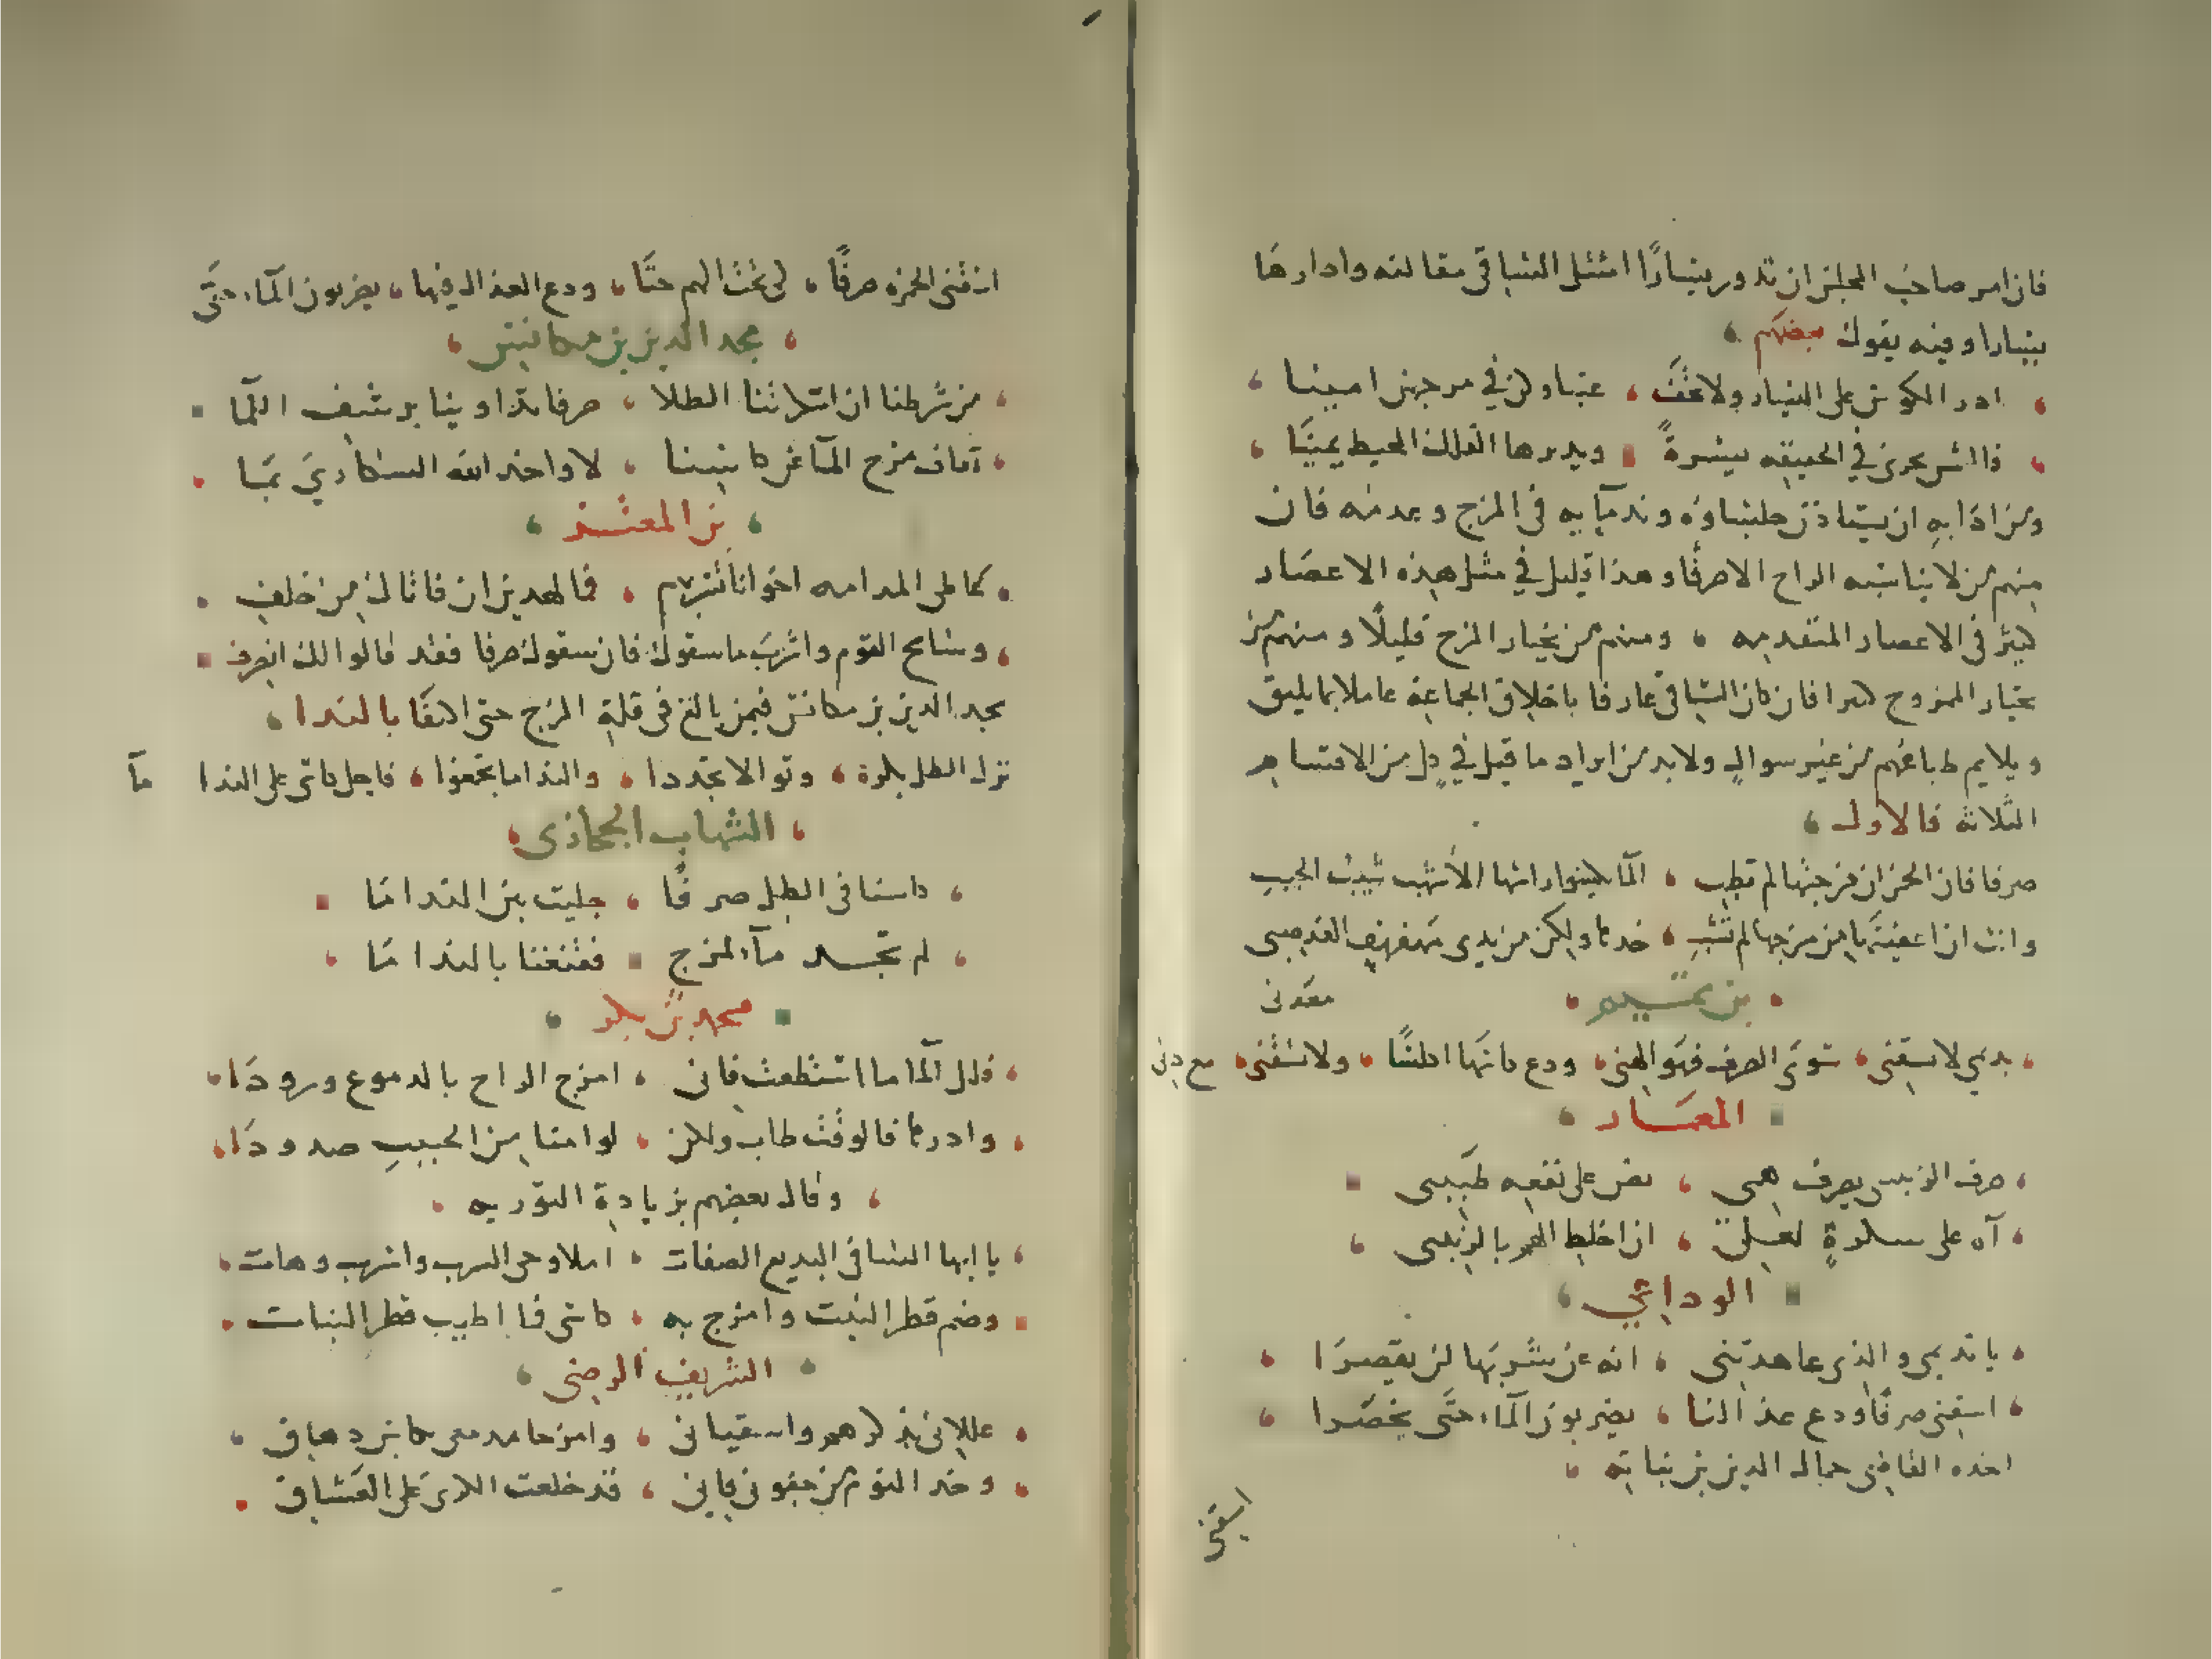 فان امر صاحب المجلس ان تدور يسارا امتثل الساقى مقالته وادارها
يسارا وفيه يقول بعضهم
ادر الكوس على اليسار ولا تخف عتبا ولن في مرجهن امينا
فالشمس تجرى في الحقيقه يسرة ويديرها الفلك المحيط يمينا
ومن ادابه ان يستاذن جلساوه وندمآيه فى المزج وعدمه فان
منهم من لا يناسبه الراح الا صرفا وهذا قليل في مثل هذه الاعصار
كثير فى الاعصار المتقدمه ومنهم من يختار المزج قليلا ومنهم من
يختار الممزوج كثيرا فان كان الساقى عارفا باخلاق الجماعة عاملا بما يليق
ويلايم طباعهم من غير سوال ولا بد من ايراد ما قيل في كل من الاقسام
الثلاثة فالاول
صرفا فان الخمر ان مزجتها لم تطب المآ يكسو راسها الاشهب شيب
وانت اذا اعفيتها من مزجها لم تشب خدها ولكن من يدى مهفهف
بن تميم
نديمي لا تسقنى سوى الصرف فهو الهنى ودع كاسها اطلسا ولا تسقنى مع دنى
المعمار
صرف الزبيب يصرف همى نص على نفعه طبيبى
آه على سكرة لعلى ان اخلط الهم بالزبيب
الوداعي
يا نديمى والذى عاهدتنى انه عن شربها لن يقصرا
اسقنى صرفا ودع عذالنا يضربون المآء حتى يخضرا
اخذه القاضى جمال الدين بن نباته
اسقنى
اسقنى الخمرة صرفا لى تحث الهم حثا ودع العذال فيها يضربون المآء حتى
مجد الدين بن مكانس
من شرطنا ان اسكرتنا الطلا صرفا تداوينا برشف اللما
نعاف مزج المآ في كاسنا لا واخذ الله السكارى بما
بن المعتز
كما على المدامه اخوانا تسرهم فالهم ان قاتا لك من خلف
وسامح القوم واشرب ما سقوك فان سقوك صرفا فقد قالوا لك انصرف
مجد الدين بن مكانس فيمن بالغ فى قلة المزج حتى اكتفا بالندا
نزل الطل بكرة وتوالا تجددا والنداما تجمعوا فاجل كاسى على الندا
الشهاب الحجازى
كاسنا فى الطل صرفا جليت بين الندامَا
لم تجد مآء لمزج فقنعنا بالندا مَا
محمد بن بكر
قلل المآ ما استطعت فانى امزج الراح بالدموع ورودا
وادرها فالوقت طاب ولكن لو امنا من الحبيب صدودا
وقال بعضهم بزيادة التوريه
يا ايها الساقى البديع الصفات املا وحى الشرب واشرب وهات
وضم قطر النبت وامزج به كاسى فما اطيب قطر النبات
الشريف الرضى
عللانى بذكرهم واسقيانى وامزجا مدمعى بكاس دهاق
وخذ النوم من جفونى فانى قد خلعت الكرى على العشاق